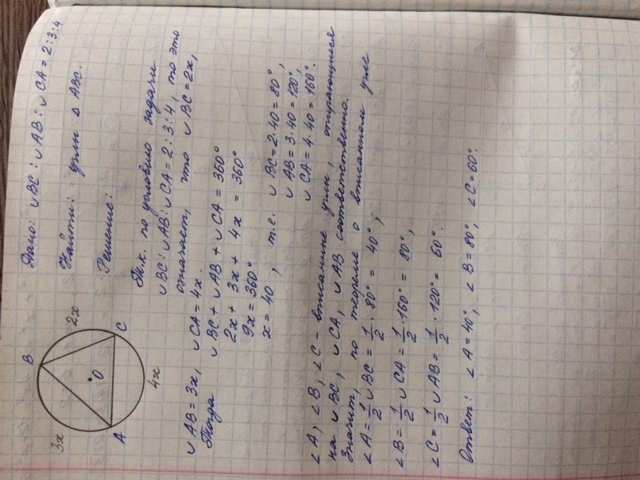 B
2x
3x
O
A
C
4x
Дано: ∪BC : ∪AB : ∪CA = 2:3:4
Найти: углы Δ ABC.
Решение:
Т.к. по условию задачи
∪BC : ∪AB : ∪CA = 2:3:4, то это
означает, что ∪BC = 2x,
∪AB = 3x, ∪CA = 4x.
Тогда ∪BC + ∪AB + ∪CA = 360°
2x + 3x + 4x = 360°
9x = 360°
x = 40, т.е. ∪BC = 2·40 = 80°,
∪AB = 3·40 = 120°,
∪CA = 4·40 = 160°.
∠A, ∠B, ∠C – вписанные углы, опирающиеся
на ∪BC, ∪CA, ∪AB соответственно.
Значит, по теореме о вписанном угле
∠A = 1/2 ∪BC = 1/2 · 80° = 40°;
∠B = 1/2 ∪CA = 1/2 · 160° = 80°;
∠C = 1/2 ∪AB = 1/2 · 120° = 60°.
Ответ: ∠A = 40°, ∠B = 80°, ∠C = 60°.